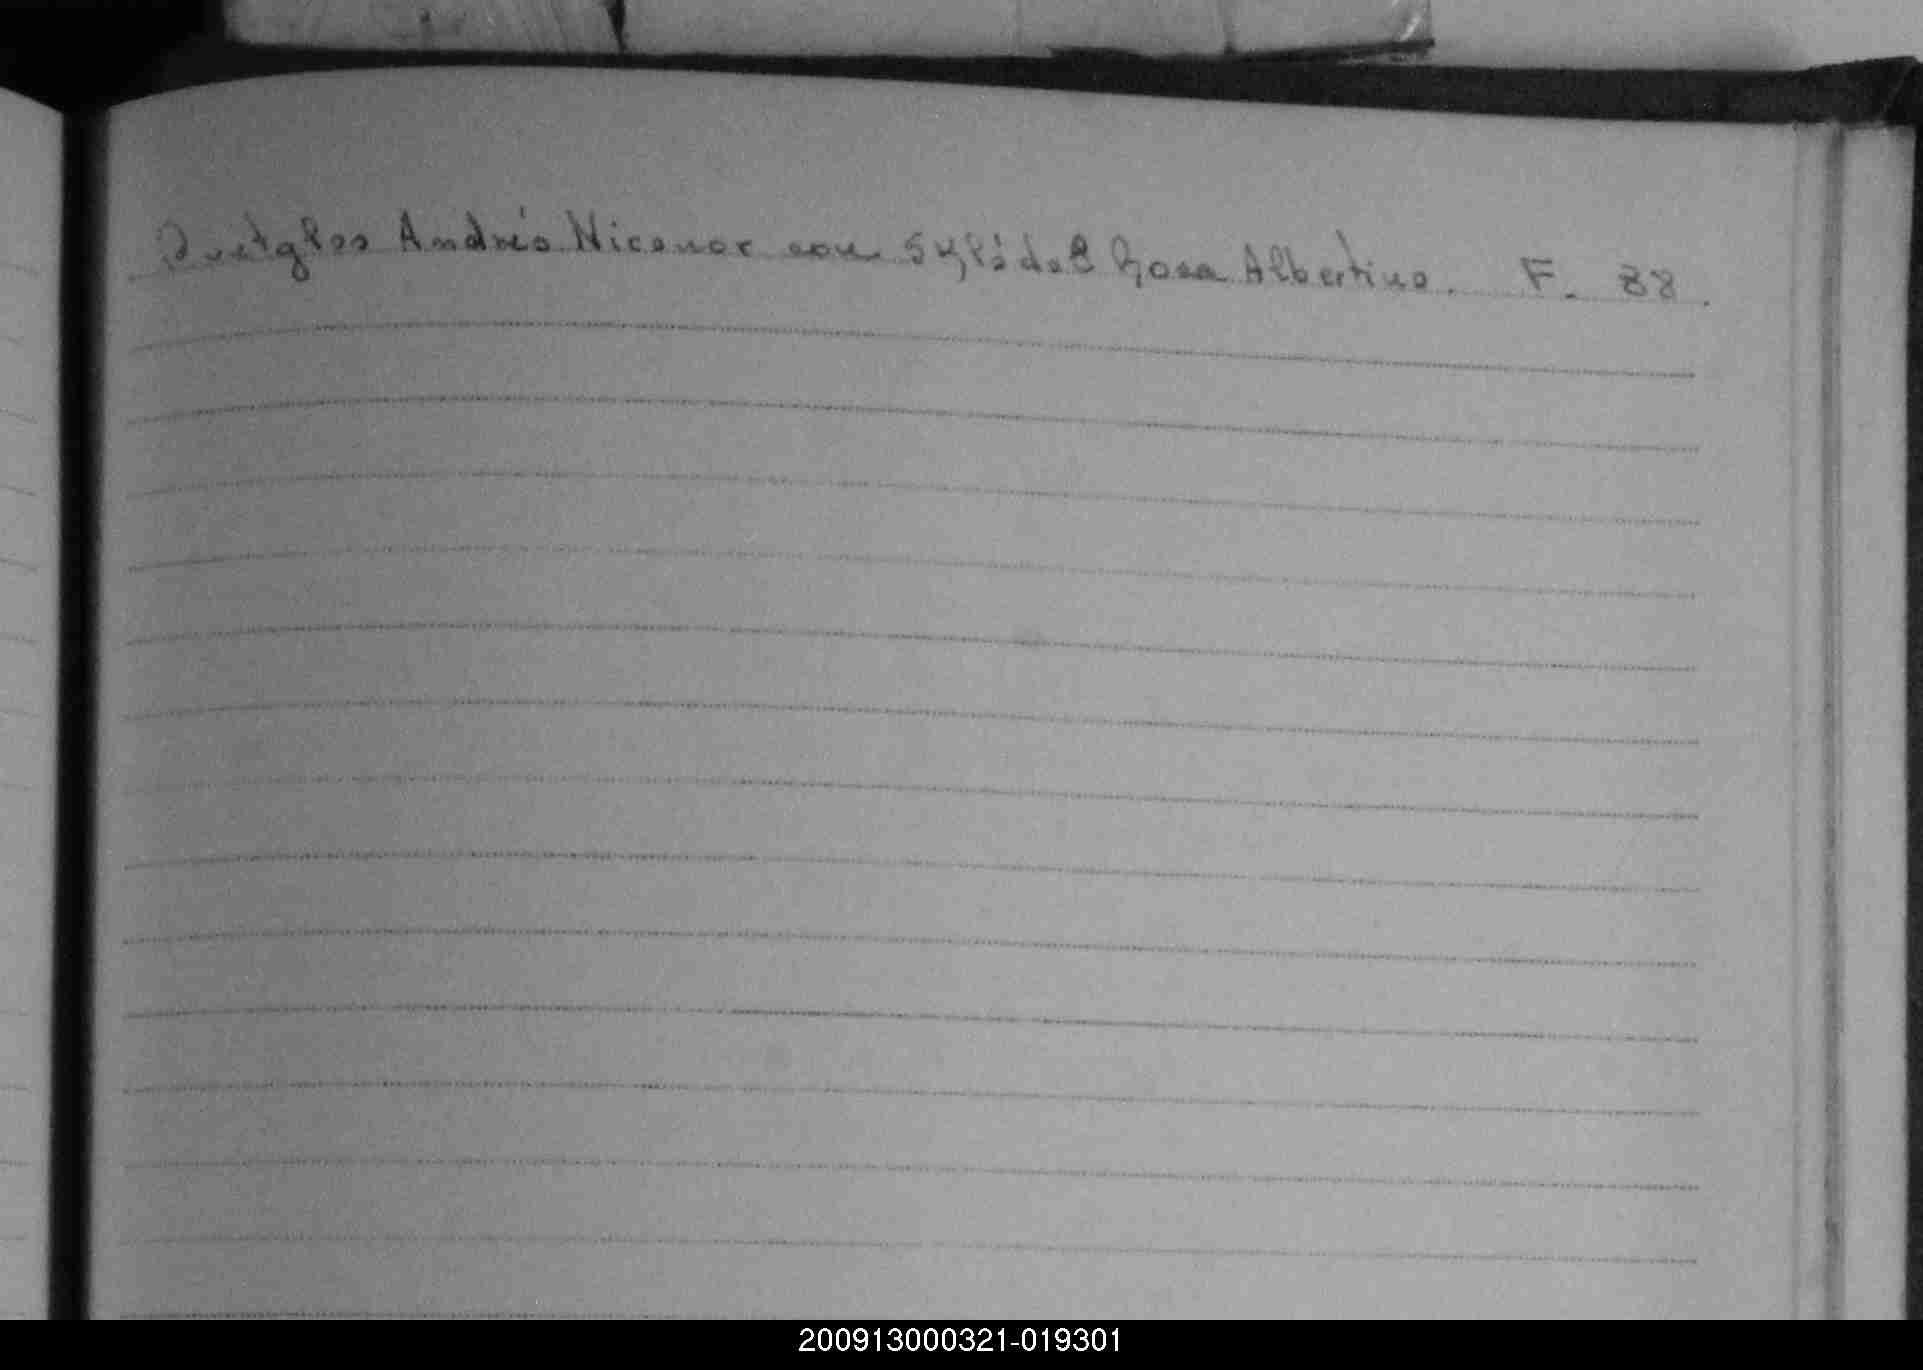 Quetglas Andrés Nicanor con Rosa Albertina. F. 88.
200913000321-019301